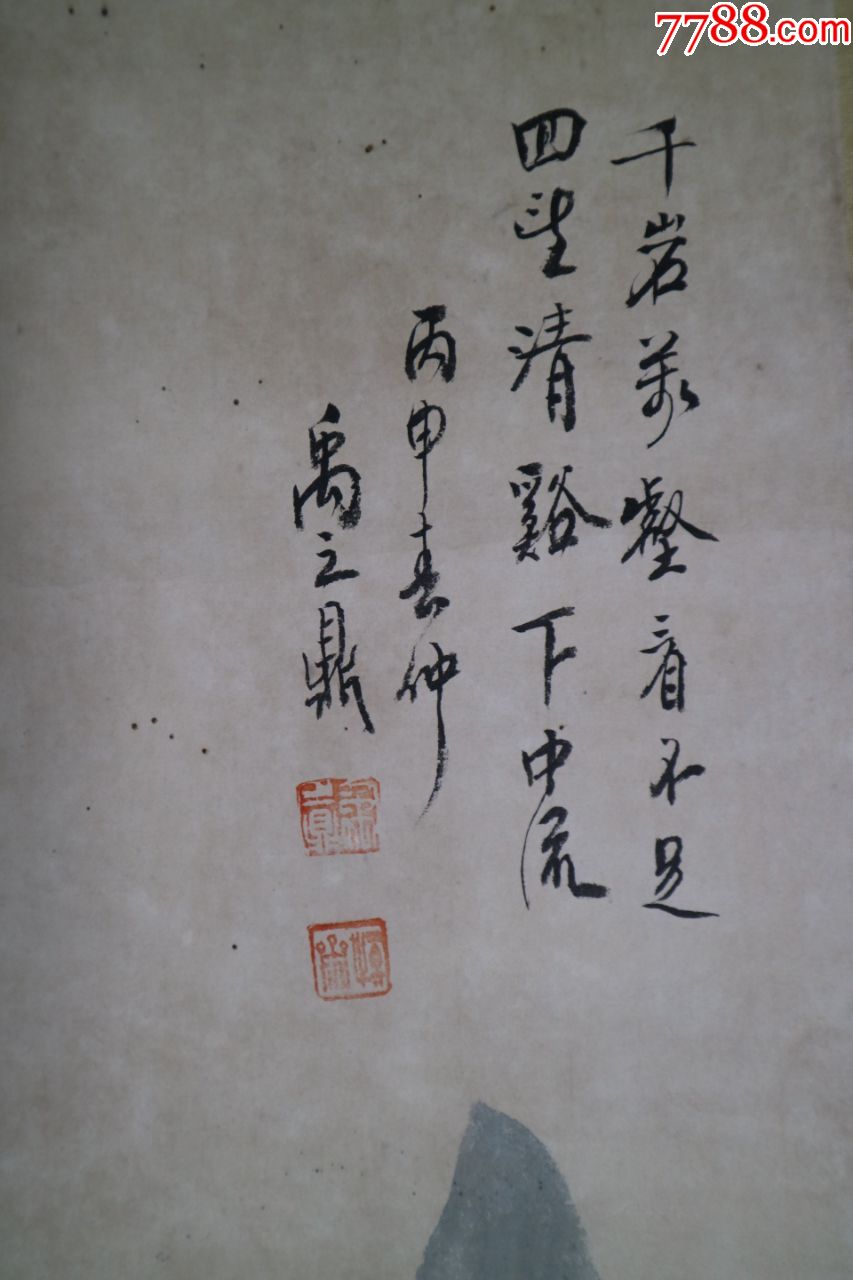 7788.com
千岩萬壑看不足
四望清谿下中流
丙申春仲
禹之鼎